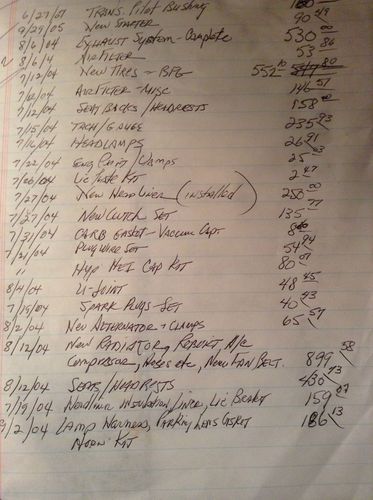 6/27/07 TRANS. Pilot Bushing
9/29/05 New STARTER 90 49
8/6/04 EXHAUST System - Complete 530 00
8/6/4 AIR FILTER 53 86
7/12/04 New Tires - BFG 552 10
7/10/04 AIR FILTER - MISC 146 57
7/12/04 SEAT BACKS / HEADRESTS 158 00
7/15/04 TACH / GAUGE 235 93
7/16/04 HEADLAMPS 26 91
7/22/04 Eng Paint / Clamps 25 03
7/26/04 Lic Plate Kit 2 47
7/27/04 New HeadLiner (installed) 250 00
7/27/04 New CLUTCH SET 135 77
7/31/04 CARB GASKET - VACUUM Caps
7/21/04 Plug Wire Set 54 94
" Hyp Kit Cap Kit 80 07
8/4/04 U-JOINT 48 45
7/15/04 SPARK Plugs - SET 40 43
8/2/04 New Alternator + Clamps 65 57
8/12/04 New RADIATOR, Rebuilt A/C
Compressor, Hoses etc, New FAN BELT. 899 58
8/12/04 SEATS / HEADRESTS 430 73
7/19/04 Headliner Insulation, Liner, Lic Bracket 159 07
9/2/04 Lamp Harness, Parking Lens Gasket 186 13
Horn Kit